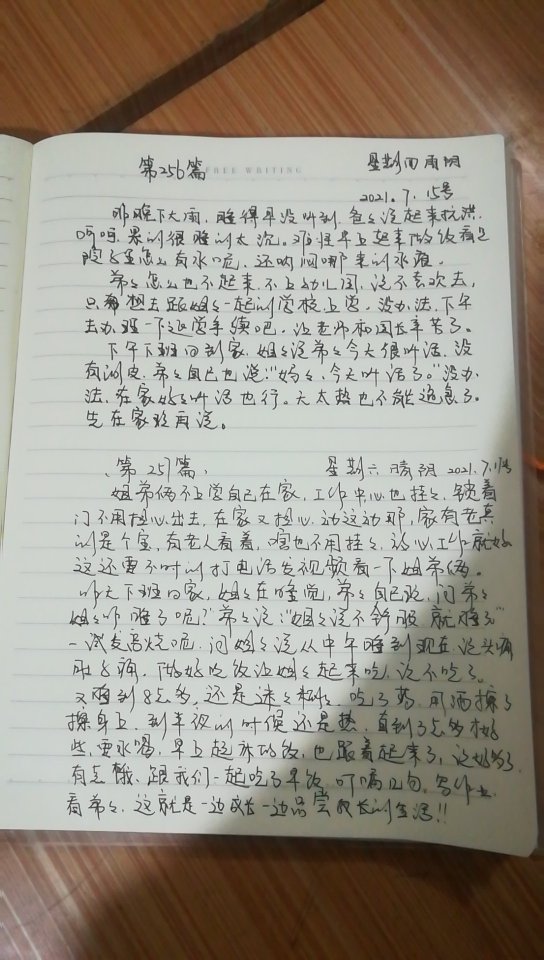 第256篇 FREE WRITING 星期四 雨阴
2021.7.15号
昨晚下大雨,睡得早没听到,爸爸说起来抗洪,
呵呵,果的很睡的太沉。难怪早上起来做饭看见
怎么有水呢,还纳闷哪来的水哦。
弟弟怎么也不起来,不上幼儿园,说不喜欢去,
只想去跟姐姐一起的学校上学。没办法,下午
去办理一下退学手续吧,让老师和园长辛苦了。
下午下班回到家,姐姐说弟弟今天很听话,没
有调皮,弟弟自己也说:“妈妈,今天听话了。”没办
法,在家好好听话也行。天太热也不能追急了。
先在家玩再说。
第257篇 星期六 晴阴 2021.7.17号
姐弟俩不上学自己在家,工作中心也挂着,锁着
门不用担心出去,在家又担心动这动那,家有老真
的是个宝,有老人看着,啥也不用挂着,放心工作就好
这还要不时的打电话发视频看一下姐弟俩。
昨天下班回家,姐姐在睡觉,弟弟自己玩,问弟弟
姐姐咋睡了呢?弟弟说:“姐姐说不舒服就睡了”
一试发高烧呢,问姐姐说从中午睡到现在,说头痛
肚子痛,做好吃饭让姐姐起来吃,说不吃了。
又睡到8点多,还是迷迷糊糊,吃了药,用酒擦了
擦身上,到半夜的时候还是热,直到3点多才好
些,要水喝,早上起来做饭,也跟着起来了,说好多了
有点饿,跟我们一起吃了早饭,叮嘱几句,写作业
看弟弟,这就是一边成长一边品尝成长的生活!!